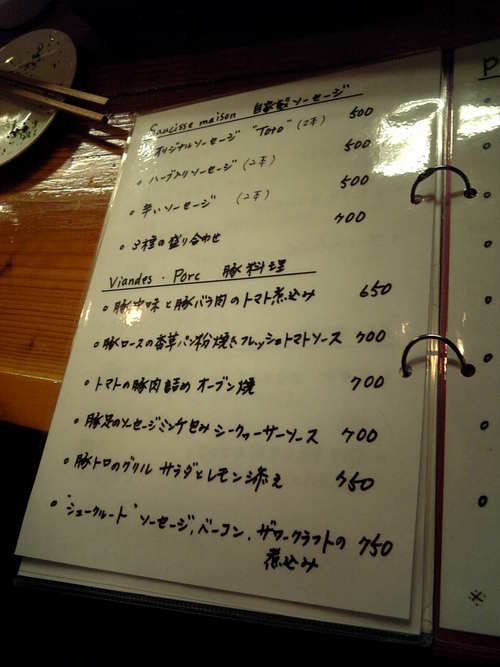 Saucisse maison 自家製ソーセージ
オリジナルソーセージ "Toto" (2本) 500
ハーブ入りソーセージ (2本) 500
辛いソーセージ (2本) 500
3種の盛り合わせ 700
Viandes . Porc 豚料理
豚中味と豚バラ肉のトマト煮込み 650
豚ロースの香草パン粉焼きフレッシュトマトソース 700
トマトの豚肉詰め オーブン焼 700
豚足のソーセージミンチ包み シークヮーサーソース 700
豚トロのグリル サラダとレモン添え 750
"シュークルート" ソーセージ、ベーコン、ザワークラフトの 750
煮込み
P
※